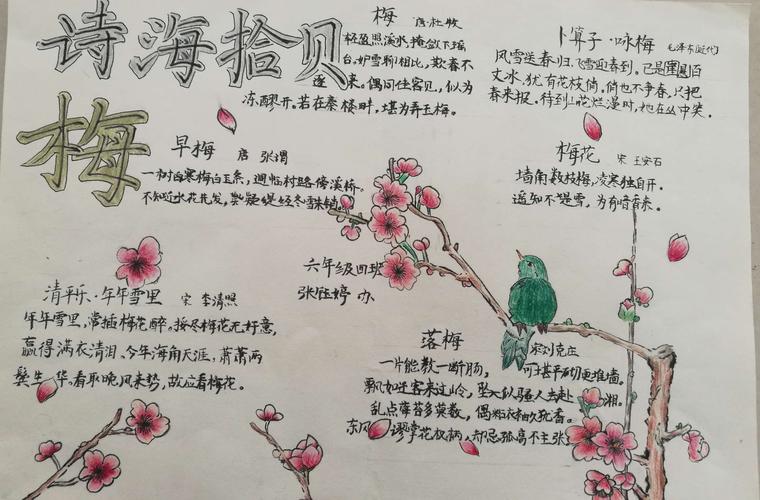 诗海拾贝
梅
梅 唐·杜牧
轻盈照溪水,掩敛下瑶
台。妒雪聊相比,欺春不
逐来。偶同佳客见,似为
冻醪开。若在秦楼畔,堪为弄玉梅。
卜算子·咏梅 毛泽东(近代)
风雪送春归,飞雪迎春到。已是
丈冰,犹有花枝俏。俏也不争春,只把
春来报。待到山花烂漫时,她在丛中笑。
早梅 唐 张谓
一树白寒梅白玉条,迥临村路傍溪桥。
不知近水花先发,疑是经冬雪未销。
梅花 宋 王安石
墙角数枝梅,凌寒独自开。
遥知不是雪,为有暗香来。
六年级四班
张 婷 办
清平乐·年年雪里 宋 李清照
年年雪里,常插梅花醉。挼尽梅花无好意,
赢得满衣清泪。今年海角天涯,萧萧两
鬓生华。看取晚风来势,故应看梅花。
落梅 宋刘克庄
一片能教一断肠, 可堪平砌更堆墙。
飘如迁客来过岭,坠似骚人去赴湘。
乱点莓苔多莫数,偶粘衣袖久犹香。
东风谬掌花权柄,却忌孤高不主张。